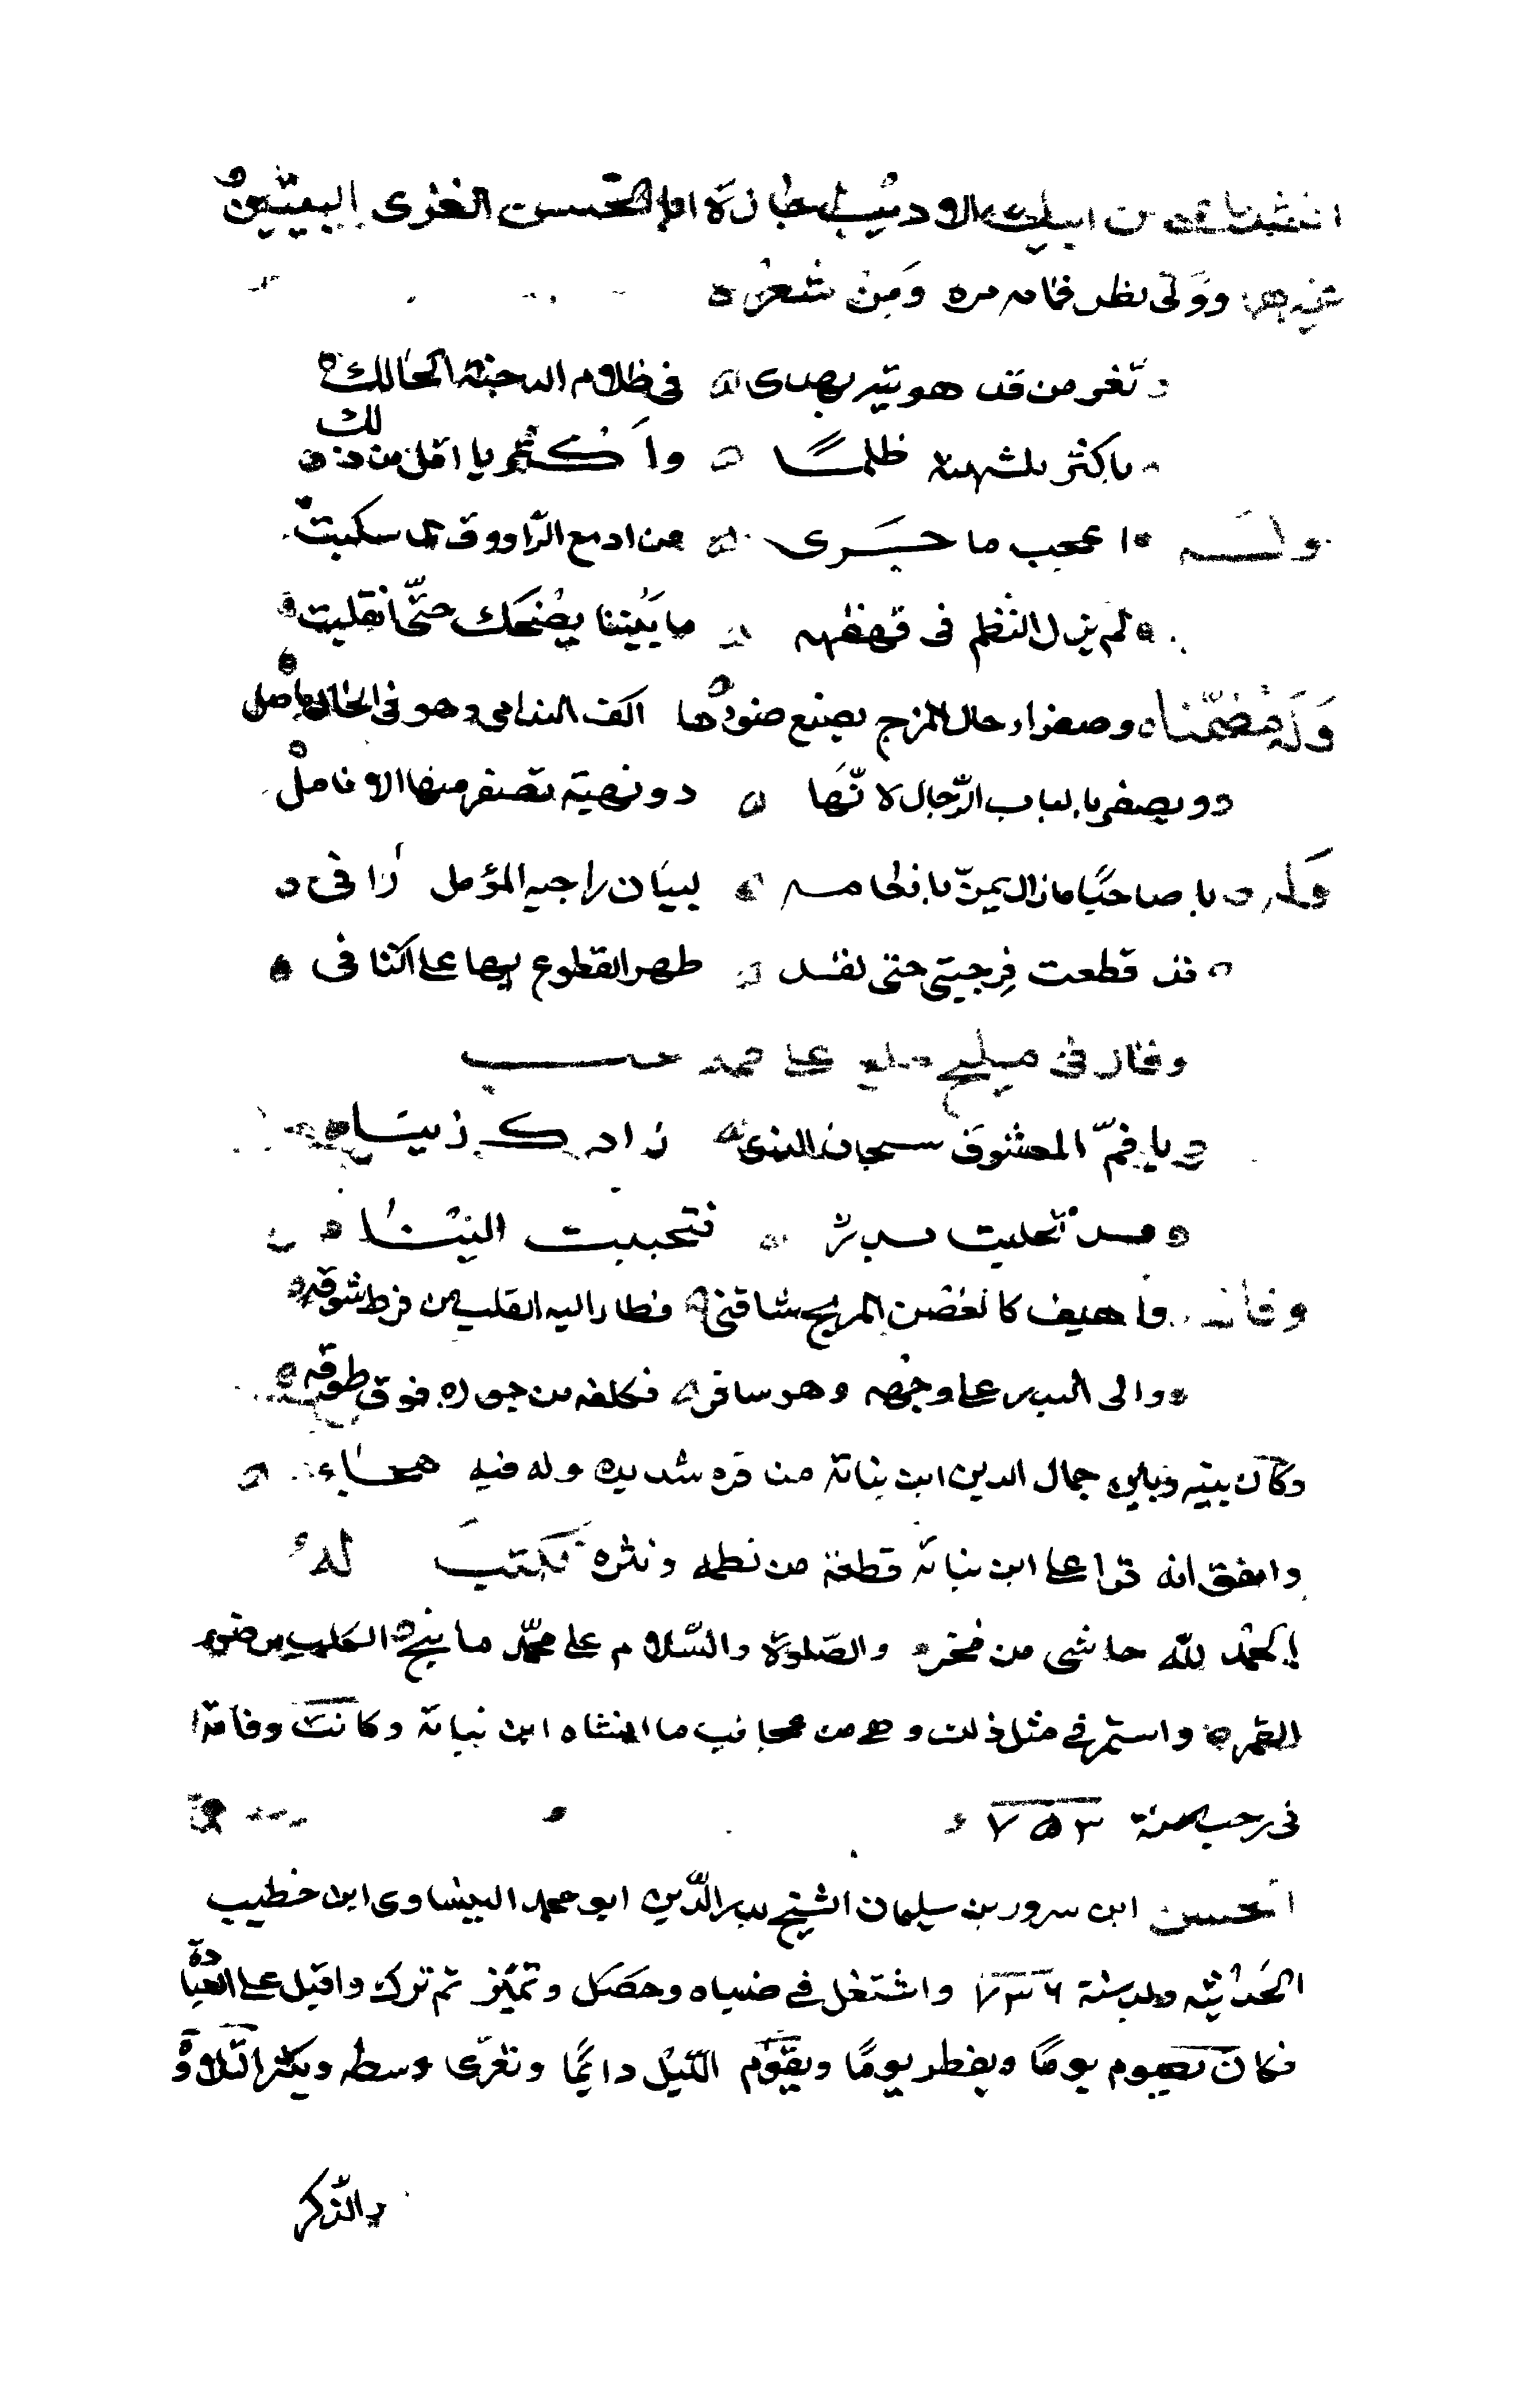 انشدنا من الاديب الحسن الغزى البيتين
وفى نظر فانه مره ومن شعره
وثغر من قد هويته يهدى فى ظلام الدجنة الحالك
باكثر بلثمه ظلمًا واكثر يا اقل من ذلك
وله اعجب ما جرى من ادمع الراووق سكبت
لم يزل النظم فى قهقهه ما بيننا يضحك حتى انقلبت
وله مضمنا وصفراء حال المزج يصبغ ضوءها اكف الندامى وهو فى الحال ناصل
دويهية تصفر منها الانامل
وله يا صاحبًا مازال يمن بانعامه لبيان راجيه المؤمل رافى
قد قطعت فرجيتى حتى لقد ظهر القطوع بها على اكتافى
وقال فى مليح على فمه حب
يا فم المعشوق سبحان الذى زادك زينا
قد تحليت بدر فتحببت الينا
وقال واهيف كالغصن المريح شاقنى فطار اليه القلب من فرط شوقه
والى البدر على وجهه وهو سافر فكلفه من جوره فوق طوقه
وكان بينه وبين جمال الدين ابن نباتة منافره شديده وله فيه هجاء
واتفق انه قرا على ابن نباتة قطعة من نظمه ونثره فكتب له
الحمد لله حاشى من فخره والصلوة والسلام على محمد ما نبح الكلب من ضوء
القمر واستمر فى مثل ذلك وهى من عجائب ما انشاه ابن نباتة وكانت وفاته
فى رجب سنة ٧٥٣
الحسن ابن سرور بن سليمان الشيخ بدر الدين ابو محمد ابن خطيب
الحديثه ولد سنة ٧٣٦ واشتغل فى صباه وحصل وتميز ثم ترك واقبل على العبادة
فكان يصوم يومًا ويفطر يومًا ويقوم الليل دائمًا وسطه ويكثر التلاوة
والذكر